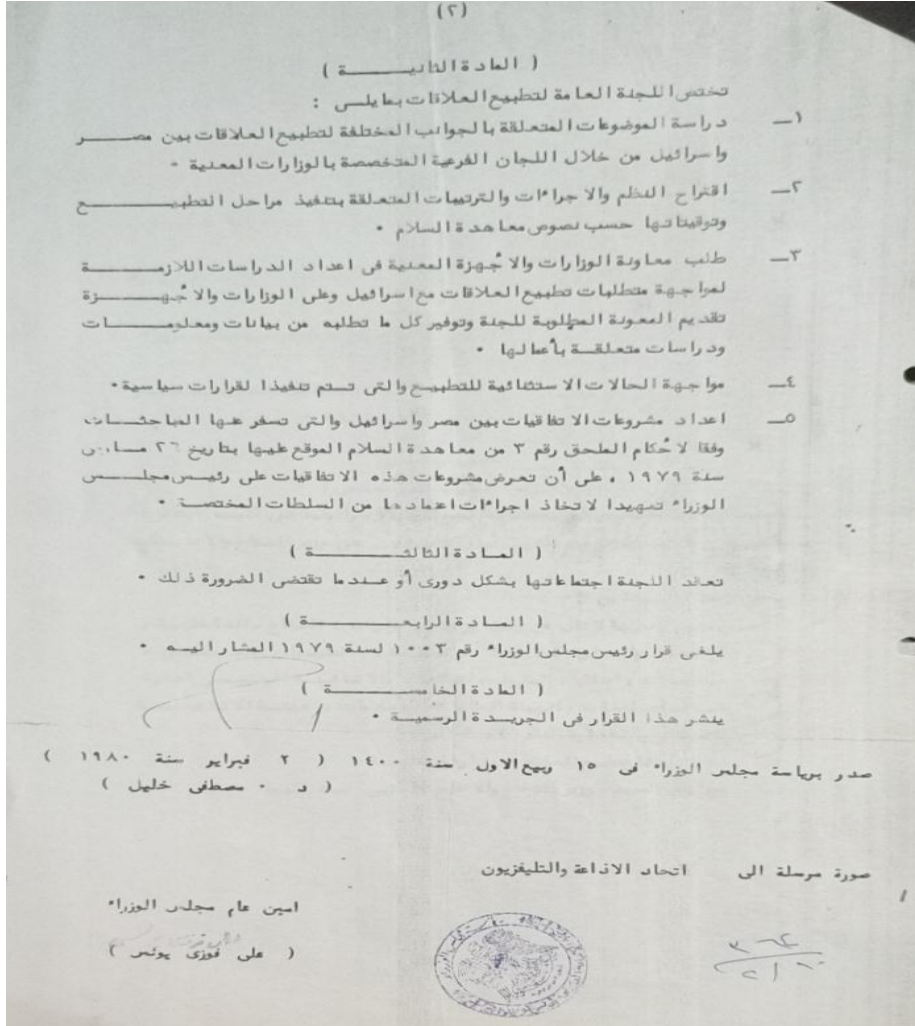 (٢)
( المادة الثانيـــــة )
تختص اللجنة العامة لتطبيع العلاقات بمايلـى :
١ـ دراسة الموضوعات المتعلقة بالجوانب المختلفة لتطبيع العلاقات بين مصـــر
واسرائيل من خلال اللجان الفرعية المتخصصة بالوزارات المعنية ٠
٢ـ اقتراح النظم والاجراءات والترتيبات المتعلقة بتنفيذ مراحل التطبيـــــع
وتوقيتاتها حسب نصوص معاهدة السلام ٠
٣ـ طلب معاونة الوزارات والأجهزة المعنية فى اعداد الدراسات اللازمــــة
لمواجهة متطلبات تطبيع العلاقات مع اسرائيل وعلى الوزارات والأجهـــــزة
تقديم المعونة المطلوبة للجنة وتوفير كل ما تطلبه من بيانات ومعلومـــات
ودراسات متعلقــة بأعمالها ٠
٤ـ مواجهة الحالات الاستثنائية للتطبيع والتى تـتم تنفيذا لقرارات سياسية٠
٥ـ اعداد مشروعات الاتفاقيات بين مصر واسرائيل والتى تسفر عنها المباحثــات
وفقا لأحكام الملحق رقم ٣ من معاهدة السلام الموقع عليها بتاريخ ٢٦ مــارس
سنة ١٩٧٩ ، على أن تعرض مشروعات هذه الاتفاقيات على رئيـس مجلــس
الوزراء تمهيدا لاتخاذ اجراءات اعتمادها من السلطات المختصــة ٠
( المـادة الثالثـــــة )
تعقد اللجنة اجتماعاتها بشكل دورى أو عندما تقتضى الضرورة ذلك ٠
( المـادة الرابعـــــة )
يلغى قرار رئيس مجلس الوزراء رقم ١٠٠٣ لسنة ١٩٧٩ المشار اليــه ٠
( المادة الخامســــة )
ينشر هذا القرار فى الجريـدة الرسميــة ٠
صدر برياسة مجلس الوزراء فى ١٥ ربيع الاول سنة ١٤٠٠ ( ٢ فبراير سنة ١٩٨٠ )
( د ٠ مصطفى خليل )
صورة مرسلة الى اتحاد الاذاعة والتليفزيون
امين عام مجلس الوزراء
( على فوزى يونس )
٣٦٤